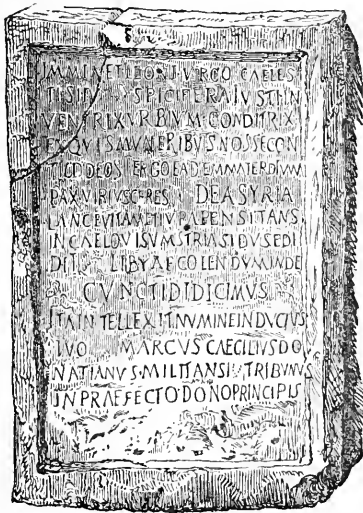 IMMINET LEONI VIRGO CAELES
TI SIT SPICIFERA IVSTI IN
VENTRIX VRBIVM CONDITRIX
EX QVIS MVNERIBVS NOSSE CON
TIGIT DEOS ERGO EADEM MATER DIVVM
PAX VIRTVS CERES DEA SYRIA
LANCE VITAM ET IVRA PENSITANS
IN CAELO VISVM SYRIA SIDVS EDI
DIT LIBYAE COLENDVM INDE
CVNCTI DIDICIMVS
ITA INTELLEXIT NVMINE INDVCTVS
TVO MARCVS CAECILIVS DO
NATIANVS MILITANS TRIBVNVS
IN PRAEFECTO DONO PRINCIPIS